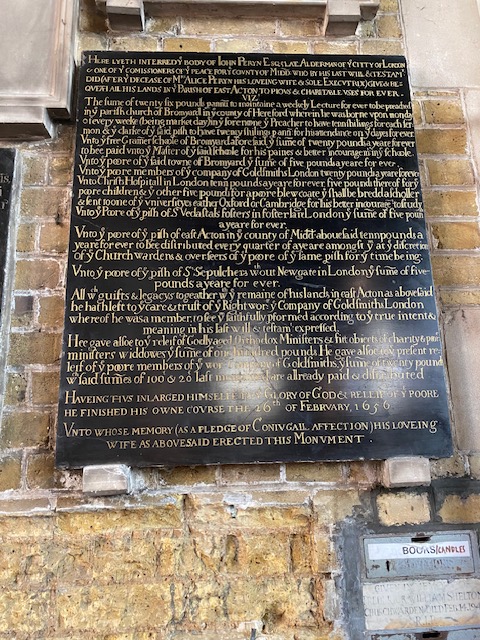 HERE LYETH INTERRED Yᵉ BODY OF IOHN PERYN ESQ: LATE ALDERMAN OF Yᵉ CITTY OF LONDON
& ONE OF Yᵉ COMISSIONERS OF Yᵉ PEACE FOR Yᵉ COVNTY OF MIDD: WHO BY HIS LAST WILL & TESTAMᵗ
DID (AFTER Yᵉ DECEASE OF Mʳˢ ALICE PERYN HIS LOVEING WIFE & SOLE EXECVTRIX) GIVE & BE
QVEATH ALL HIS LANDS IN Yᵉ PARISH OF EAST ACTON TO PIOVS & CHARITABLE VSES FOR EVER.
VIZ:
The sume of twenty six pounds p annū to maintaine a weekely Lecture for ever to be preached
in yᵉ parish church of Bromyard in yᵉ county of Hereford wherein he was borne vpon monday
of every weeke (being market day) in yᵉ forenoone yᵉ Preacher to have tenn shillings for each ser
mon & yᵉ clarke of yᵉ said pish to have twenty shillings p ann: for his attendance on yᵉ dayes for ever
Vnto yᵉ free Gramer schole of Bromyard aforesaid yᵉ sume of twenty pound a yeare for ever
to bee paid vnto yᵉ Master of yᵉ said schoole for his paines & better incouragemᵗ in yᵉ schoole.
Vnto yᵉ poore of yᵉ said towne of Bromyard yᵉ sume of five pound a yeare for ever.
Vnto yᵉ poore members of yᵉ company of Goldsmiths London twenty pound a yeare for ever
Vnto Christs Hospitall in London tenn pounds a yeare for ever, five pound therof for yᵉ
poore children & yᵉ other five pound for a poore blew coate yᵗ shall be bred a scholler
& sent to one of yᵉ vniversityes either Oxford or Cambridge for his better incourageᵗ to study
Vnto yᵉ Poore of yᵉ pish of Sᵗ Vedastals fosters in foster lane London yᵉ sume of five pound
a yeare for ever.
Vnto yᵉ poore of yᵉ pish of east Acton in yᵉ county of Midd: abouesaid tenn pound a
yeare for ever to bee distributed every quarter of a yeare amongst yᵐ at yᵉ discretion
of yᵉ Church wardens & overseers of yᵉ poore of yᵉ same pish for yᵉ time being.
Vnto yᵉ poore of yᵉ pish of Sᵗ Sepulchers wᵗʰout Newgate in London yᵉ sume of five
pound a yeare for ever.
All wᶜʰ guifts & legacys togeather wᵗʰ yᵉ remaine of his lands in east Acton as abovesaid
he hath left to yᵉ care & trust of yᵉ Right worˡˡ yᵉ Company of Goldsmiths London
whereof he was a member, to see yᵐ faithfully pformed according to yᵉ true intent &
meaning in his last will & testamᵗ expressed.
Hee gave alsoe to yᵉ releif of Godly aged Orthodox Ministers & fitt obiects of charity & poore
ministers widdowes yᵉ sume of one hundred pounds. He gave alsoe for present re-
leif of yᵉ poore members of yᵉ worˡˡ company of Goldsmiths yᵉ sume of twenty pound
wᶜʰ said sumes of 100 & 20ˡ last mentioned are allready paid & distributed
HAVEING THVS INLARGED HIMSELFE TO Yᵉ GLORY OF GOD & RELEIF OF Yᵉ POORE
HE FINISHED HIS OWNE COVRSE THE 26ᵗʰ OF FEBRVARY, 1656
VNTO WHOSE MEMORY (AS A PLEDGE OF CONIVGAIL AFFECTION) HIS LOVEING
WIFE AS ABOVESAID ERECTED THIS MONVMENT.
BOOKS/CANDLES